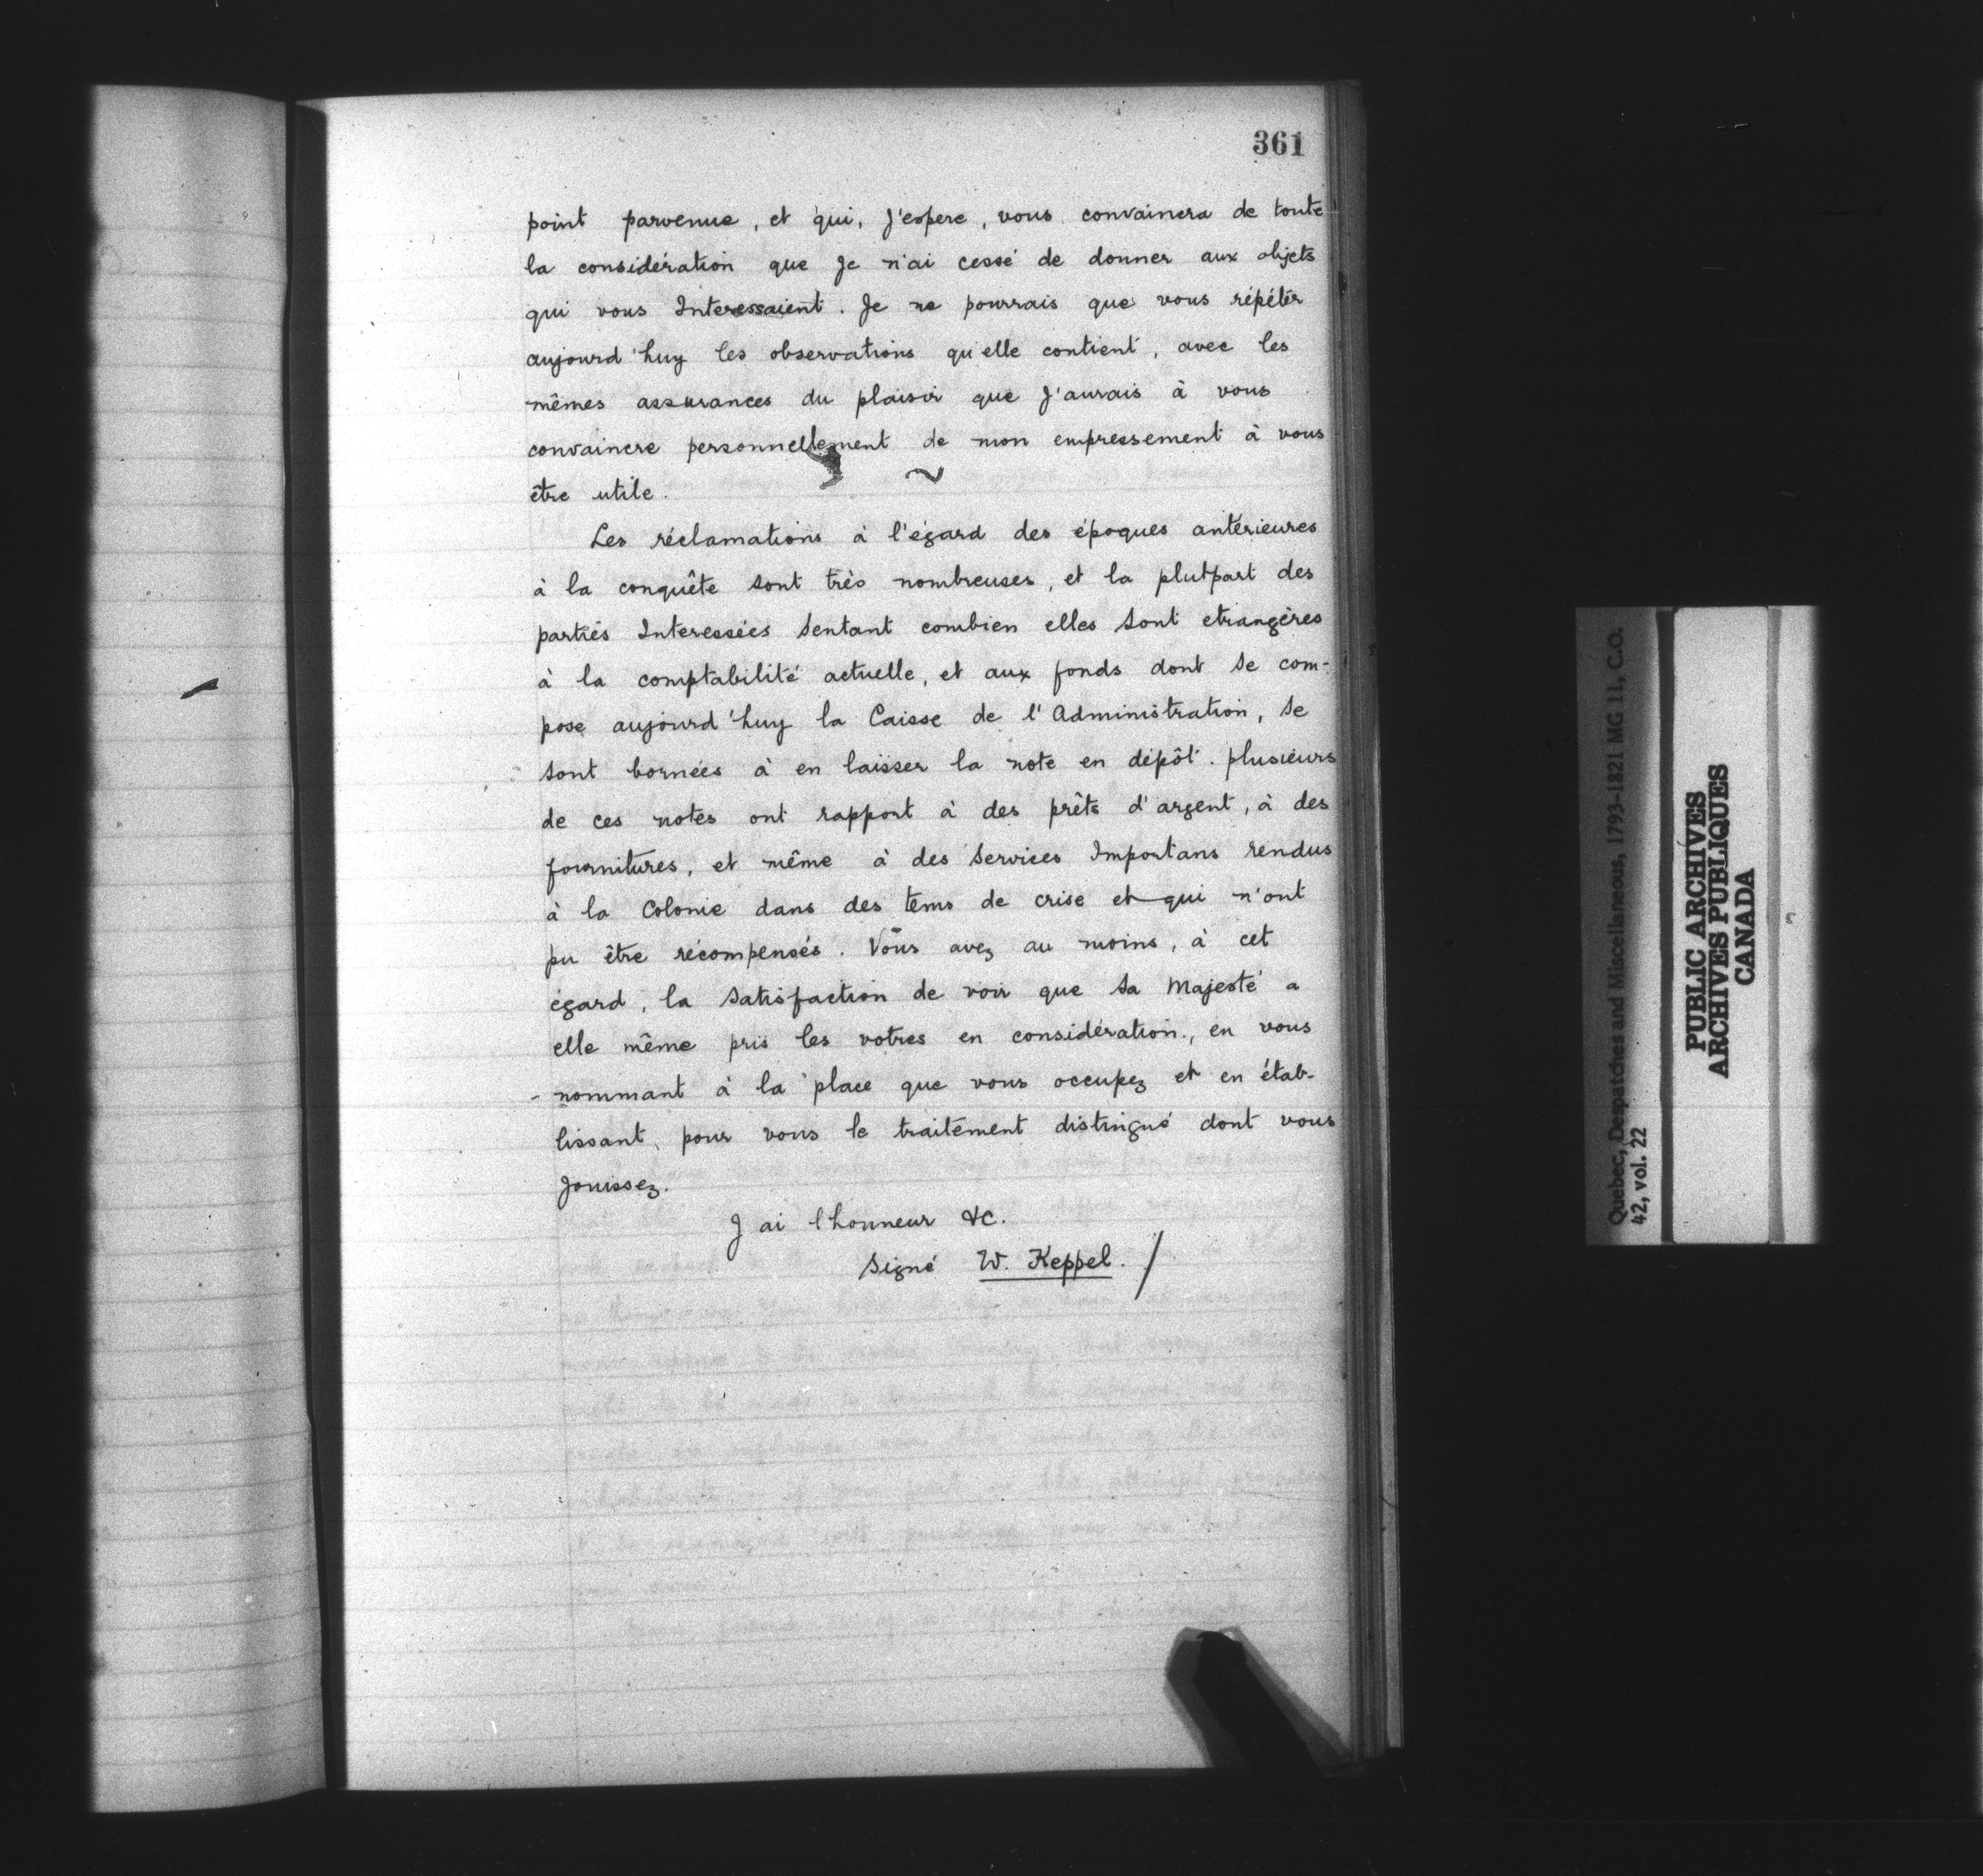 361
point parvenue, et qui, J'espere, vous convaincra de toute
la considération que Je n'ai cessé de donner aux objets
qui vous Interessaient. Je ne pourrais que vous répéter
aujourd'huy les observations qu'elle contient, avec les
mêmes assurances du plaisir que J'aurais à vous
convaincre personnellement de mon empressement à vous
être utile.
Les réclamations à l'égard des époques antérieures
à la conquête sont très nombreuses, et la plutpart des
parties Interessées sentant combien elles sont etrangères
à la comptabilité actuelle, et aux fonds dont se com-
pose aujourd'huy la Caisse de l'Administration, se
sont bornées à en laisser la note en dépôt. plusieurs
de ces notes ont rapport à des prêts d'argent, à des
fournitures, et même à des services Importans rendus
à la Colonie dans des tems de crise et qui n'ont
pu être récompensés. Vous avez au moins, à cet
égard, la satisfaction de voir que sa Majesté a
elle même pris les votres en considération, en vous
nommant à la place que vous occupez et en étab-
lissant, pour vous le traitement distingué dont vous
Jouissez.
J'ai l'honneur &c.
signé W. Keppel. /
Quebec, Despatches and Miscellaneous, 1793-1821 MG 11, C.O.
42, vol. 22
PUBLIC ARCHIVES
ARCHIVES PUBLIQUES
CANADA